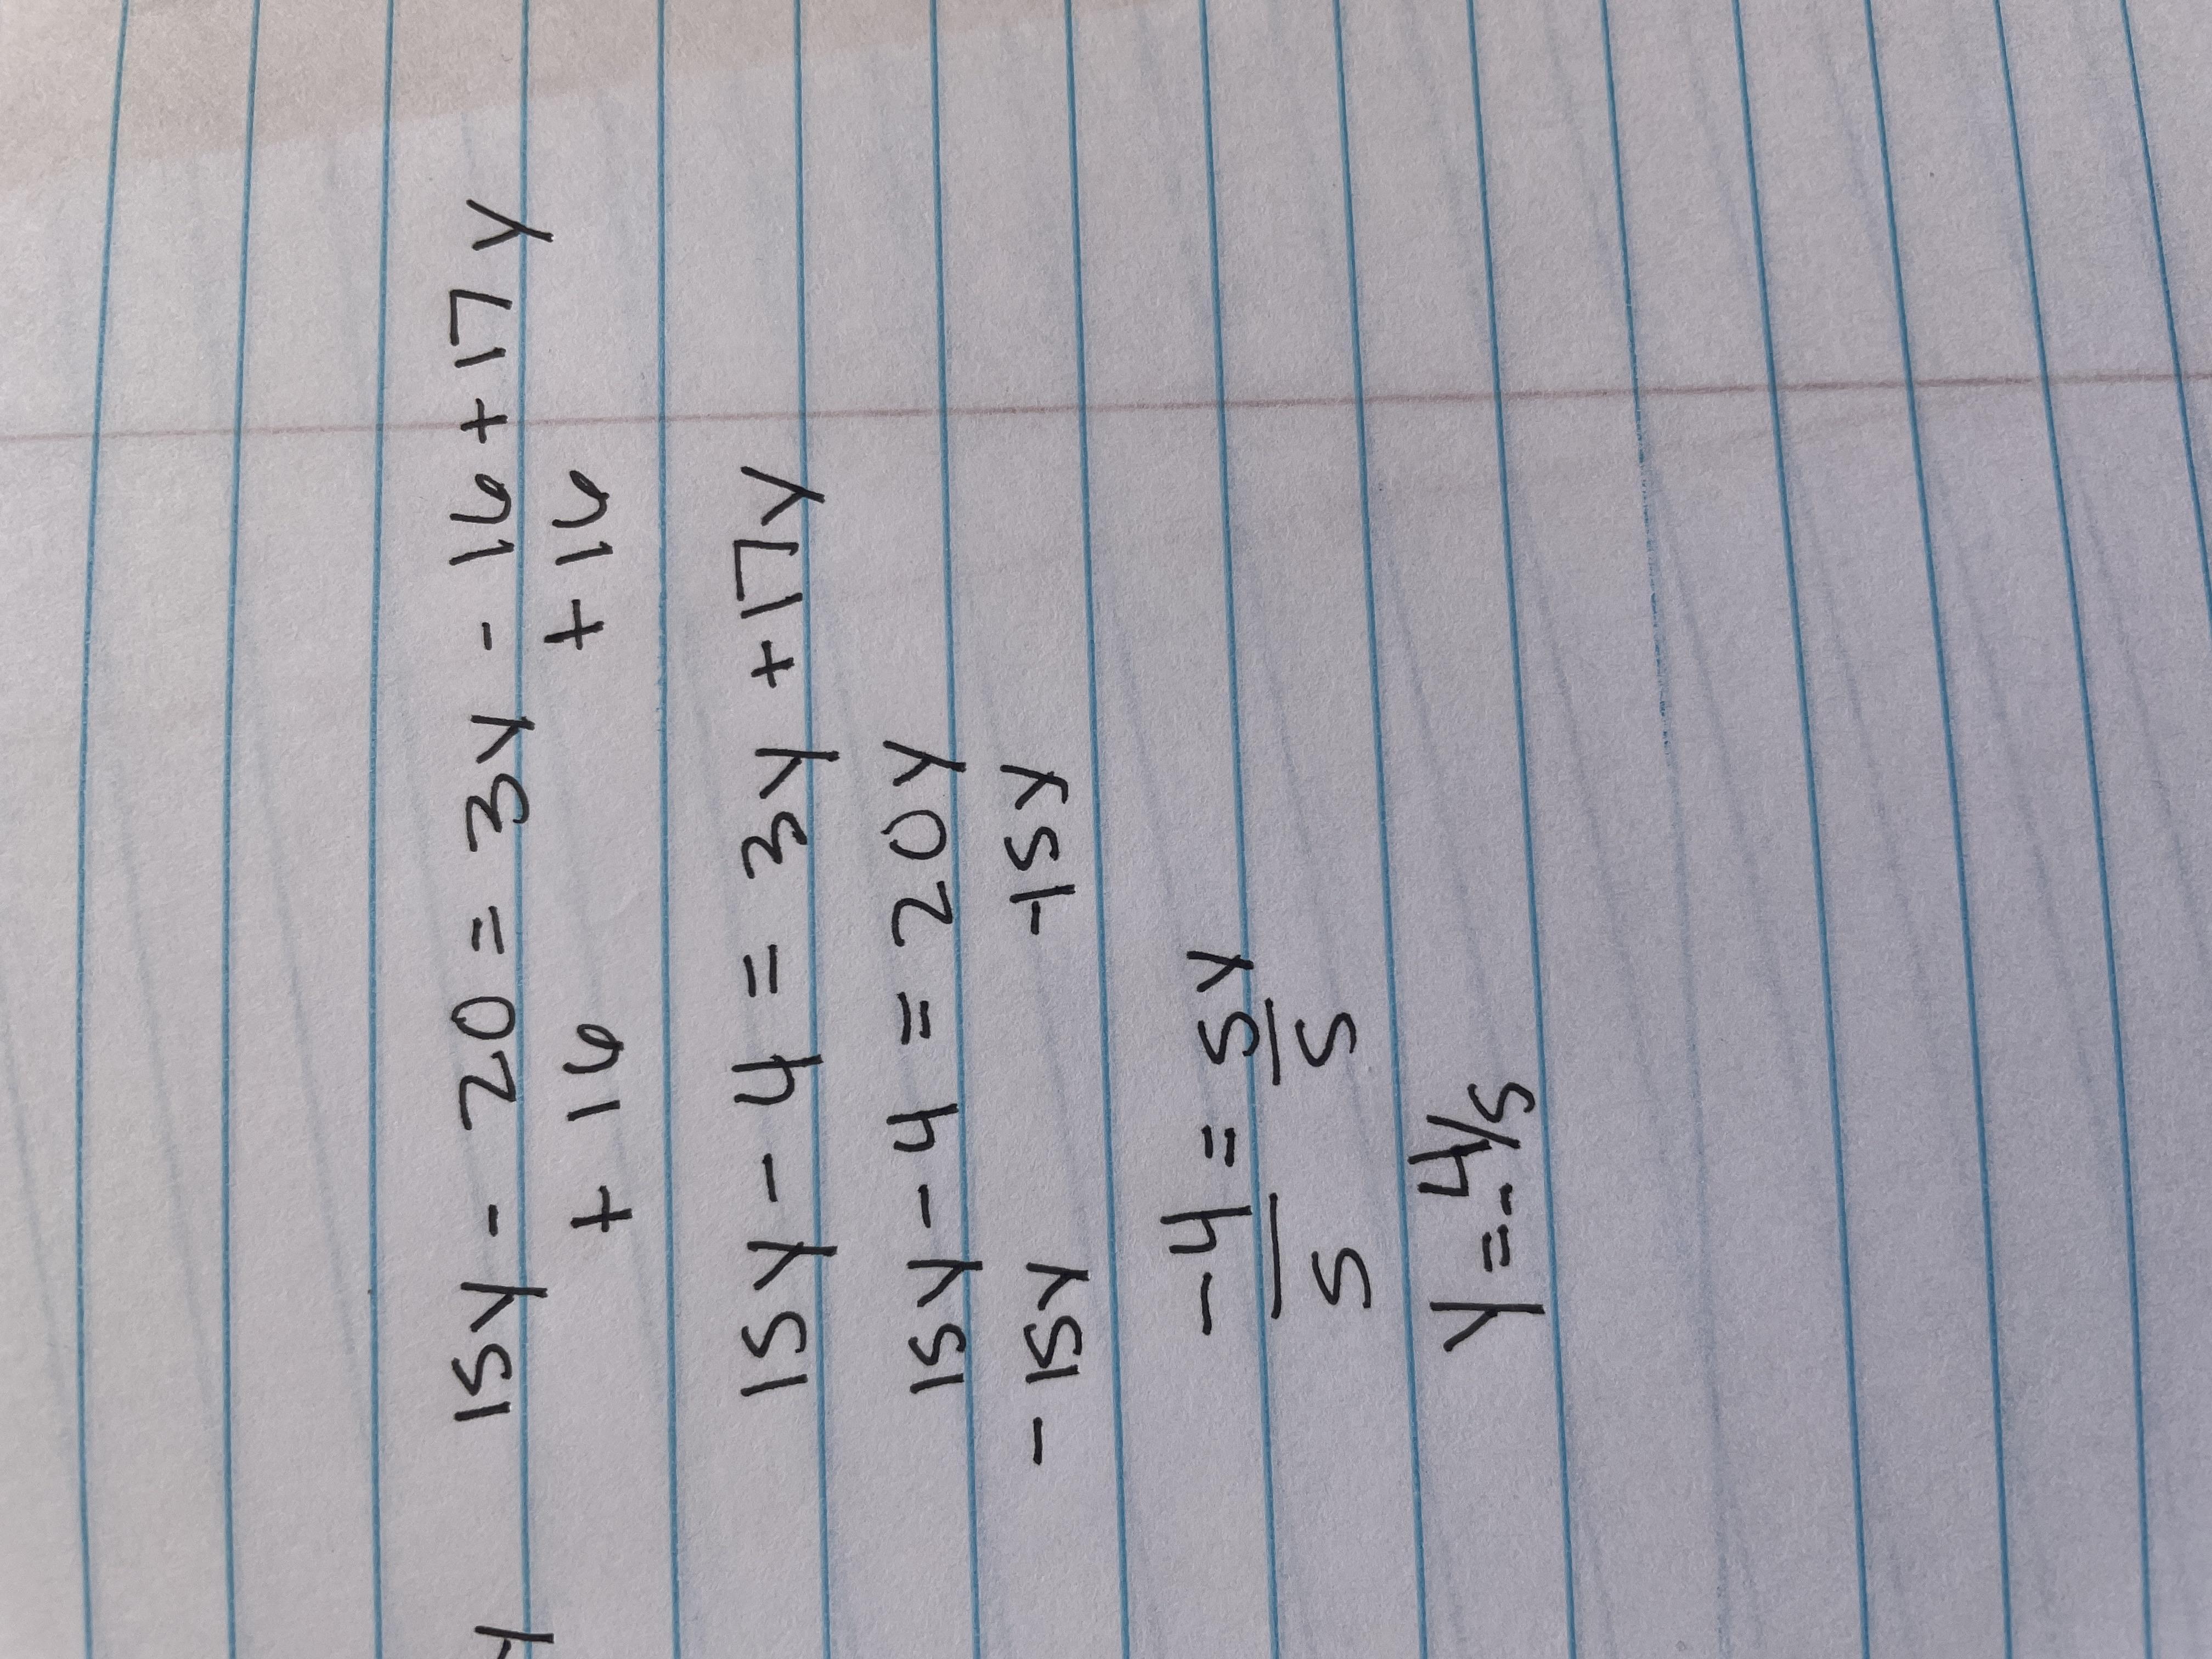 15y - 20 = 3y - 16 + 17y
+ 16 + 16
15y - 4 = 3y + 17y
15y - 4 = 20y
- 15y -15y
-4 = 5y
5 5
y = -4/5